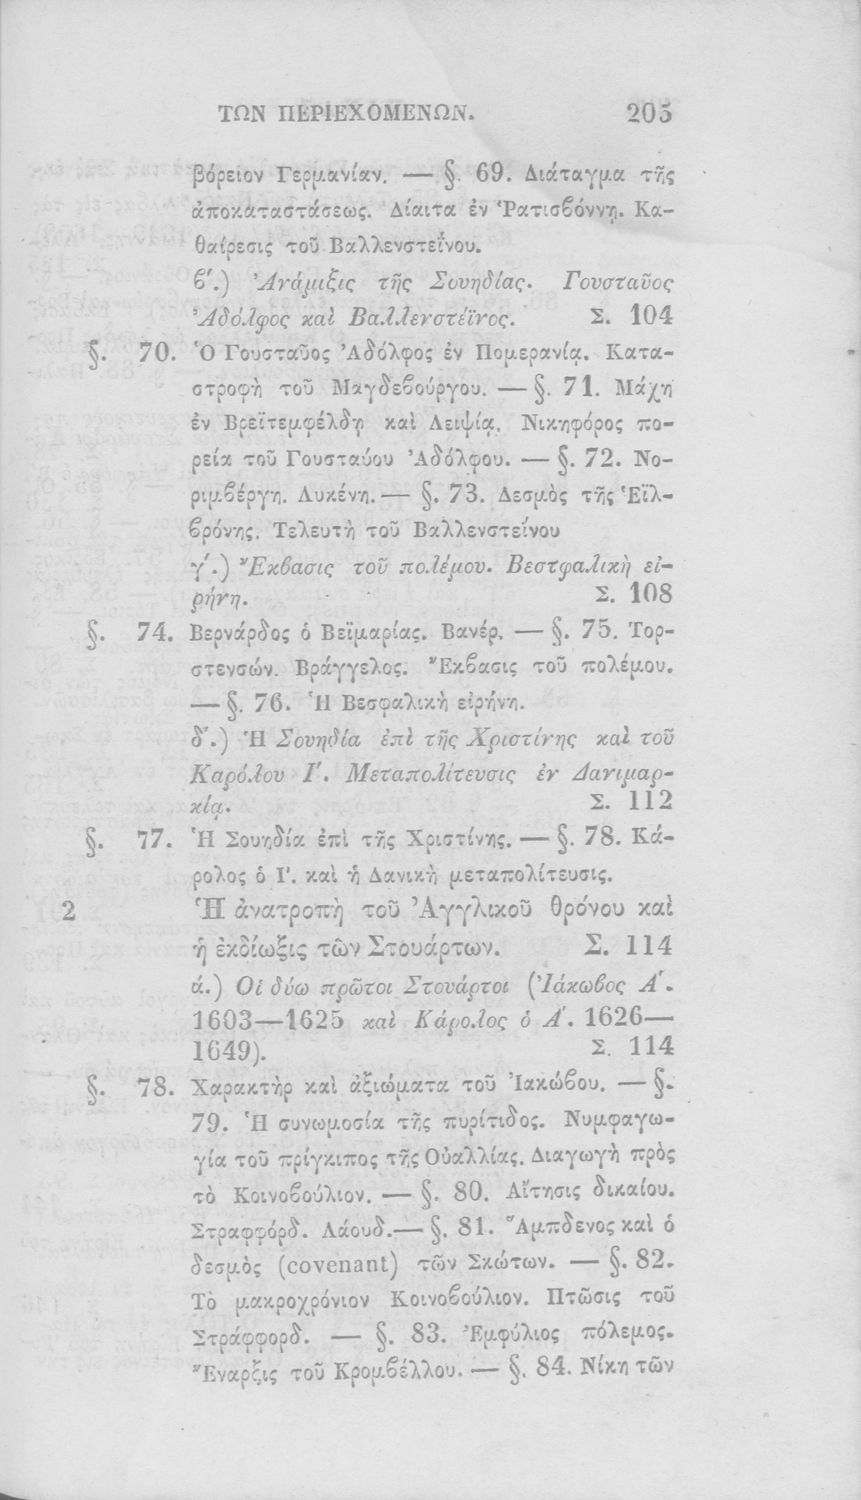 ΤΩΝ ΠΕΡΙΕΧΟΜΕΝΩΝ. 205
βόρειον Γερμανίαν. — §. 69. Διάταγμα τῆς
ἀποκαταστάσεως. Δίαιτα ἐν Ῥατισϐόννῃ. Κα-
θαίρεσις τοῦ Βαλλενστεΐνου.
ϐ'.) Ἀνάμιξις τῆς Σουηδίας. Γουσταῦος
Ἀδόλφος καὶ Βαλλενστέϊνος. Σ. 104
§. 70. Ὁ Γουσταῦος Ἀδόλφος ἐν Πομερανίᾳ. Κατα-
στροφὴ τοῦ Μαγδεϐούργου. — §. 71. Μάχη
ἐν Βρεϊτεμφέλδῃ καὶ Λειψίᾳ. Νικηφόρος πο-
ρεία τοῦ Γουσταύου Ἀδόλφου. — §. 72. Νο-
ριμϐέργη. Λυκένη. — §. 73. Δεσμὸς τῆς Ἑϊλ-
ϐρόνης. Τελευτὴ τοῦ Βαλλενστεΐνου
γ'.) Ἔκϐασις τοῦ πολέμου. Βεστφαλικὴ εἰ-
ρήνη. Σ. 108
§. 74. Βερνάρδος ὁ Βεϊμαρίας. Βανέρ. — §. 75. Τορ-
στενσών. Βράγγελος. Ἔκϐασις τοῦ πολέμου.
— §. 76. Ἡ Βεσφαλικὴ εἰρήνη.
δ'.) Ἡ Σουηδία ἐπὶ τῆς Χριστίνης καὶ τοῦ
Καρόλου Ι'. Μεταπολίτευσις ἐν Δανιμαρ-
κίᾳ. Σ. 112
§. 77. Ἡ Σουηδία ἐπὶ τῆς Χριστίνης. — §. 78. Κά-
ρολος ὁ Ι'. καὶ ἡ Δανικὴ μεταπολίτευσις.
2 Ἡ ἀνατροπὴ τοῦ Ἀγγλικοῦ θρόνου καὶ
ἡ ἐκδίωξις τῶν Στουάρτων. Σ. 114
ά.) Οἱ δύω πρῶτοι Στουάρτοι (Ἰάκωϐος Α'.
1603—1625 καὶ Κάρολος ὁ Α'. 1626—
1649). Σ. 114
§. 78. Χαρακτὴρ καὶ ἀξιώματα τοῦ Ἰακώϐου. — §.
79. Ἡ συνωμοσία τῆς πυρίτιδος. Νυμφαγω-
γία τοῦ πρίγκιπος τῆς Οὐαλλίας. Διαγωγὴ πρὸς
τὸ Κοινοϐούλιον. — §. 80. Αἴτησις δικαίου.
Στραφφόρδ. Λάουδ. — §. 81. Ἄμπδενος καὶ ὁ
δεσμὸς (covenant) τῶν Σκώτων. — §. 82.
Τὸ μακροχρόνιον Κοινοϐούλιον. Πτῶσις τοῦ
Στράφφορδ. — §. 83. Ἐμφύλιος πόλεμος.
Ἔναρξις τοῦ Κρομϐέλλου. — §. 84. Νίκη τῶν